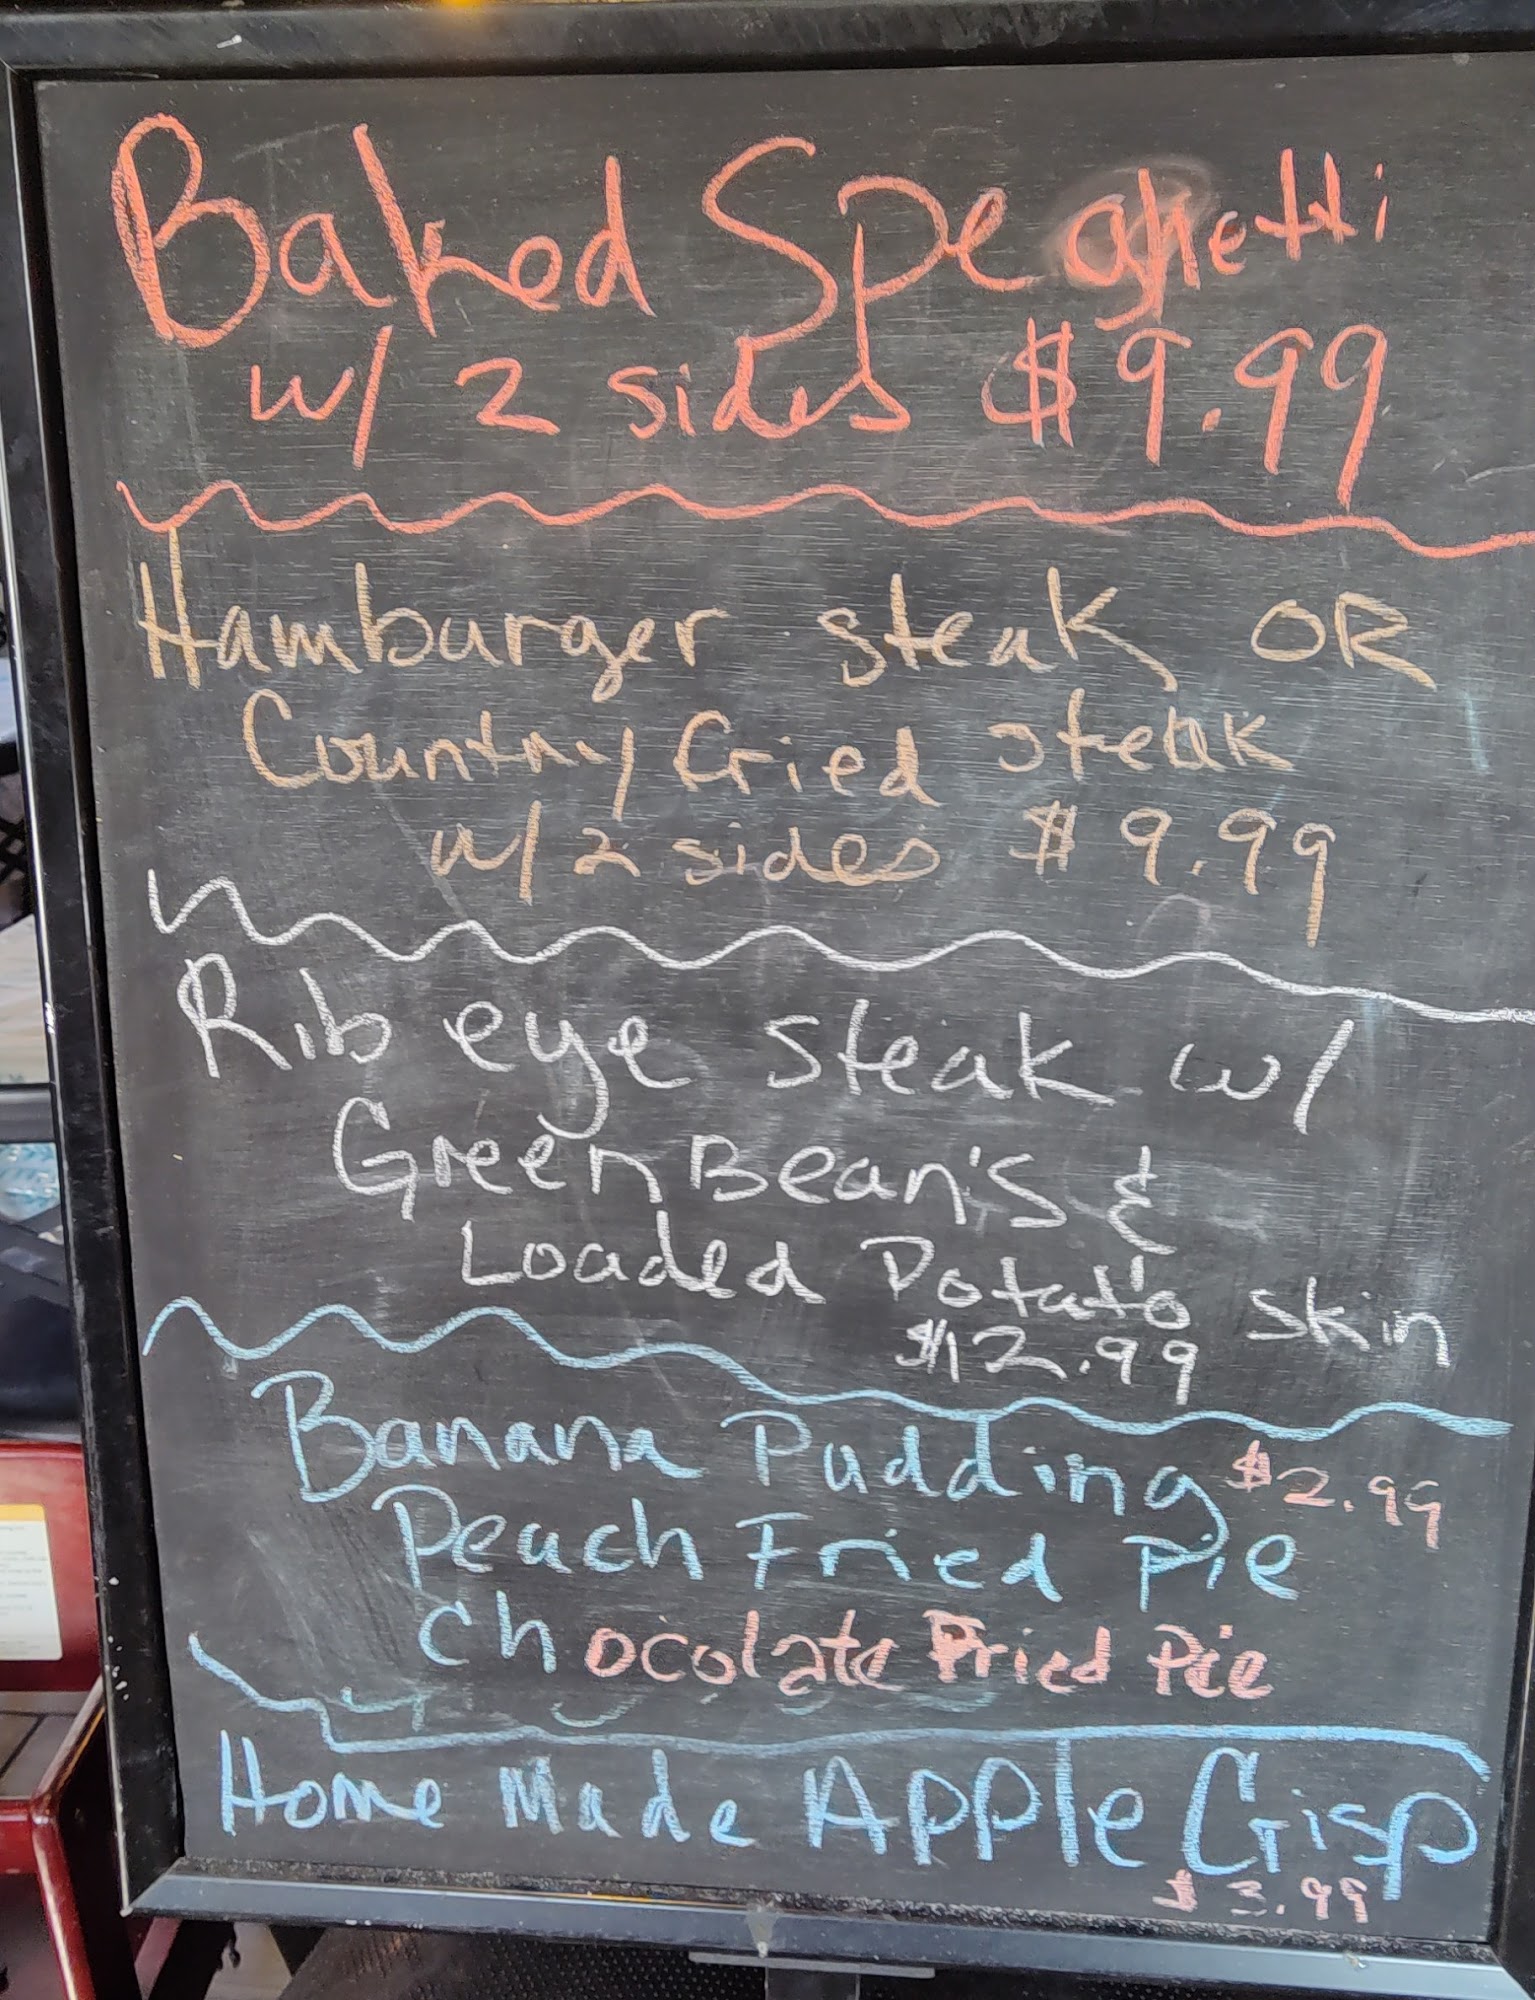 Baked Speghetti
w/ 2 sides $9.99
Hamburger steak OR
Country Fried steak
w/2 sides $9.99
Rib eye steak w/
Green Bean's &
Loaded Potato skin
$12.99
Banana Pudding $2.99
Peach Fried Pie
Chocolate Fried Pie
Home Made Apple Crisp
$3.99